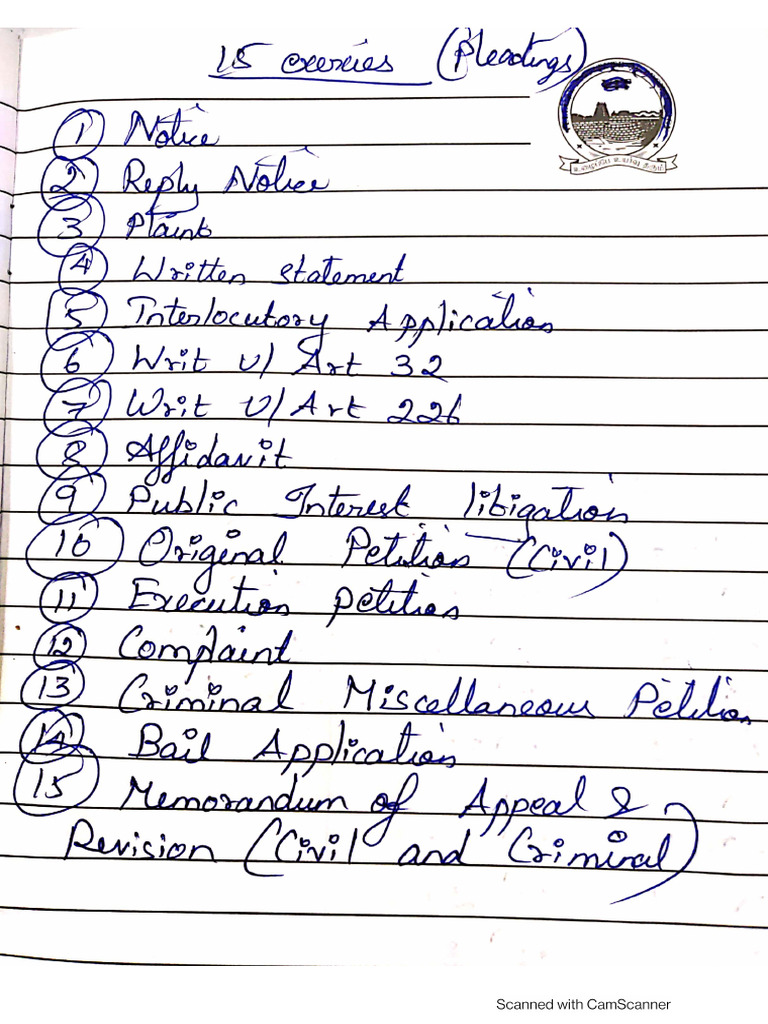 15 exercies (Pleadings)
1 Notice
2 Reply Notice
3 Plaint
4 Written statement
5 Interlocutory Application
6 Writ U/ Art 32
7 Writ U/ Art 226
8 Affidavit
9 Public Interest litigation
10 Original Petition (Civil)
11 Execution petition
12 Complaint
13 Criminal Miscellaneous Petition
14 Bail Application
15 Memorandum of Appeal &
Revision (Civil and Criminal)
Scanned with CamScanner